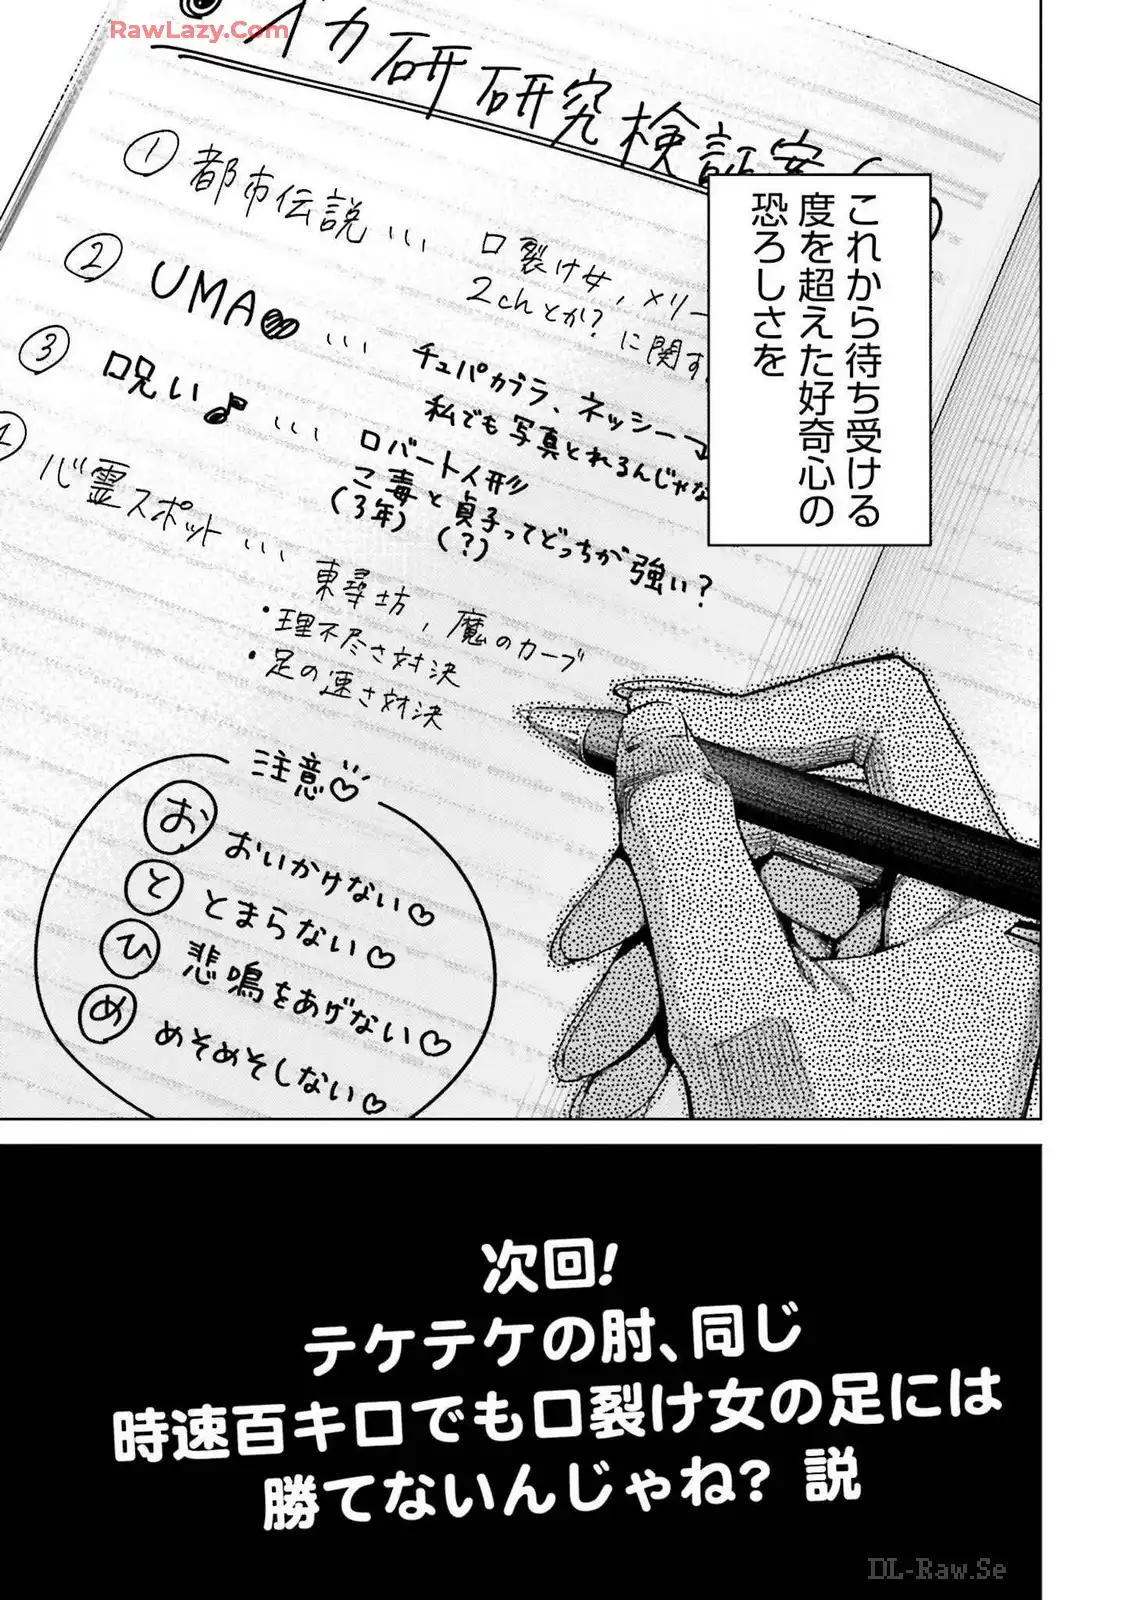 RawLazy.Com
イカ研研究検証案
これから待ち受ける
度を超えた好奇心の
恐ろしさを
① 都市伝説… 口裂け女,メリー
2chとか?に関す
② UMA♥… チュパカブラ、ネッシー
私でも写真とれるんじゃな
③ 呪い♪… ロバート人形
こ毒と貞子ってどっちが強い?
(3年) (?)
心霊スポット… 東尋坊,魔のカーブ
・理不尽さ対決
・足の速さ対決
注意♡
お おいかけない♡
と とまらない♡
ひ 悲鳴をあげない♡
め めそめそしない♡
次回!
テケテケの肘、同じ
時速百キロでも口裂け女の足には
勝てないんじゃね? 説
DL-Raw.Se